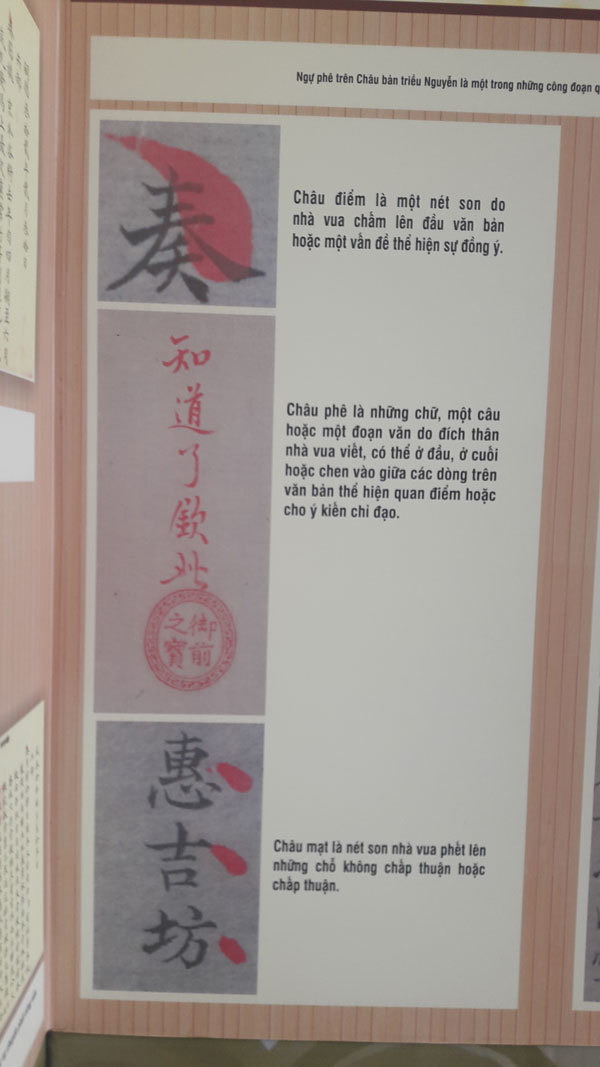 Ngự phê trên Châu bản triều Nguyễn là một trong những công đoạn q
奏
Châu điểm là một nét son do
nhà vua chấm lên đầu văn bản
hoặc một vấn đề thể hiện sự đồng ý.
知道了欽此
御前
之寶
Châu phê là những chữ, một câu
hoặc một đoạn văn do đích thân
nhà vua viết, có thể ở đầu, ở cuối
hoặc chen vào giữa các dòng trên
văn bản thể hiện quan điểm hoặc
cho ý kiến chỉ đạo.
惠吉坊
Châu mạt là nét son nhà vua phết lên
những chỗ không chấp thuận hoặc
chấp thuận.